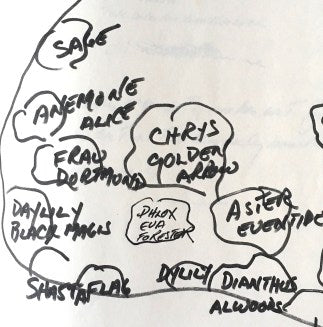 SAGE
ANEMONE
ALICE
CHRYS
GOLDEN
ARROW
FRAU
DORTMOND
DAYLILY
BLACK MAGIS
PHLOX
EVA
FORESTER
ASTER
EVENTIDE
SHASTA
FLAG
DYLILY
DIANTHUS
ALWOODS